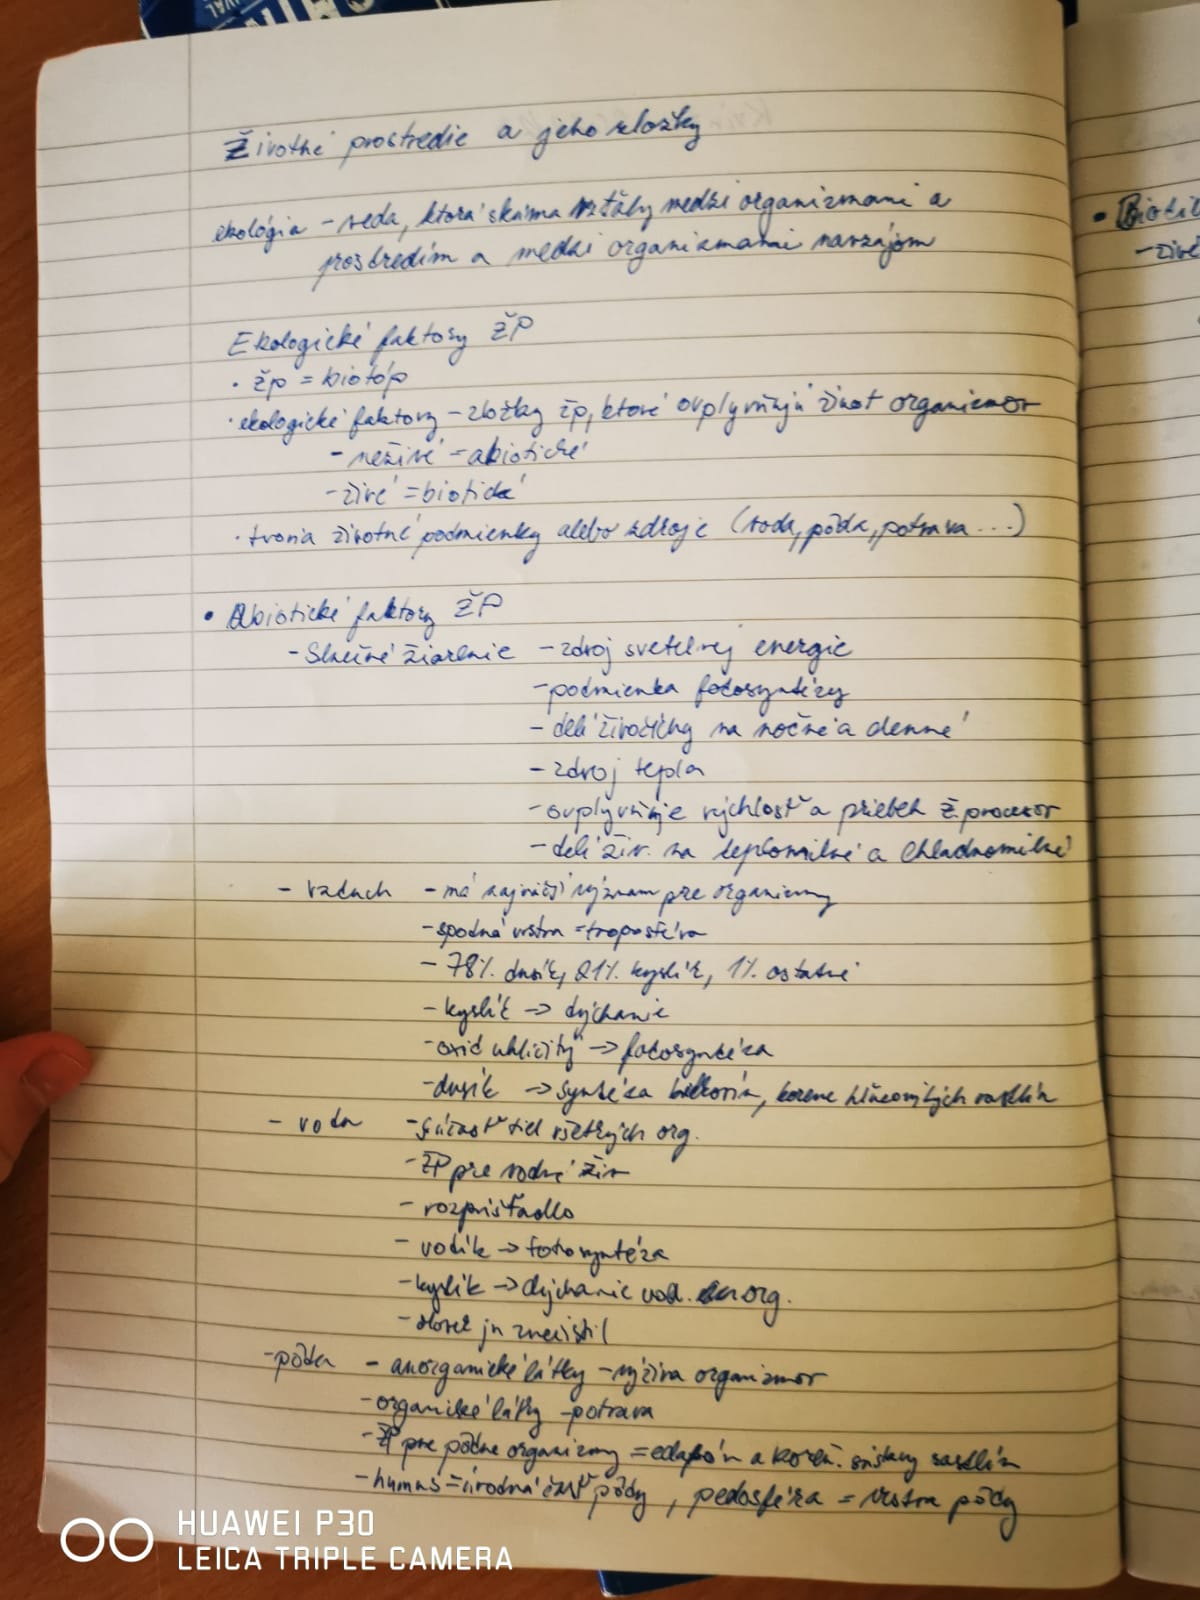 VAL
Životné prostredie a jeho zložky
ekológia - veda, ktorá skúma vzťahy medzi organizmami a
prostredím a medzi organizmami navzájom
Ekologické faktory ŽP
· žp = biotóp
· ekologické faktory - zložky žp, ktoré ovplyvňujú život organizmov
- neživé = abiotické
- živé = biotické
· tvoria životné podmienky alebo zdroje (voda, pôda, potrava ...)
• Abiotické faktory ŽP
- Slnečné žiarenie - zdroj svetelnej energie
- podmienka fotosyntézy
- delí živočíchy na nočné a denné
- zdroj tepla
- ovplyvňuje rýchlosť a priebeh ž procesov
- delí živ. na teplomilné a chladnomilné
- vzduch - má najväčší význam pre organizmy
- spodná vrstva = troposféra
- 78% dusík, 21% kyslík, 1% ostatné
- kyslík -> dýchanie
- oxid uhličitý -> fotosyntéza
- dusík -> syntéza bielkovín, korene hľúzovitých rastlín
- voda - súčasť tiel všetkých org.
- ŽP pre vodné živ
- rozpúšťadlo
- vodík -> fotosyntéza
- kyslík -> dýchanie vod. org.
- človek ju znečistil
- pôda - anorganické látky - výživa organizmov
- organické látky - potrava
- ŽP pre pôdne organizmy = edafón a koreň. sústavy rastlín
- humus = úrodná časť pôdy, pedosféra = vrstva pôdy
• Biotic
- živé
HUAWEI P30
LEICA TRIPLE CAMERA